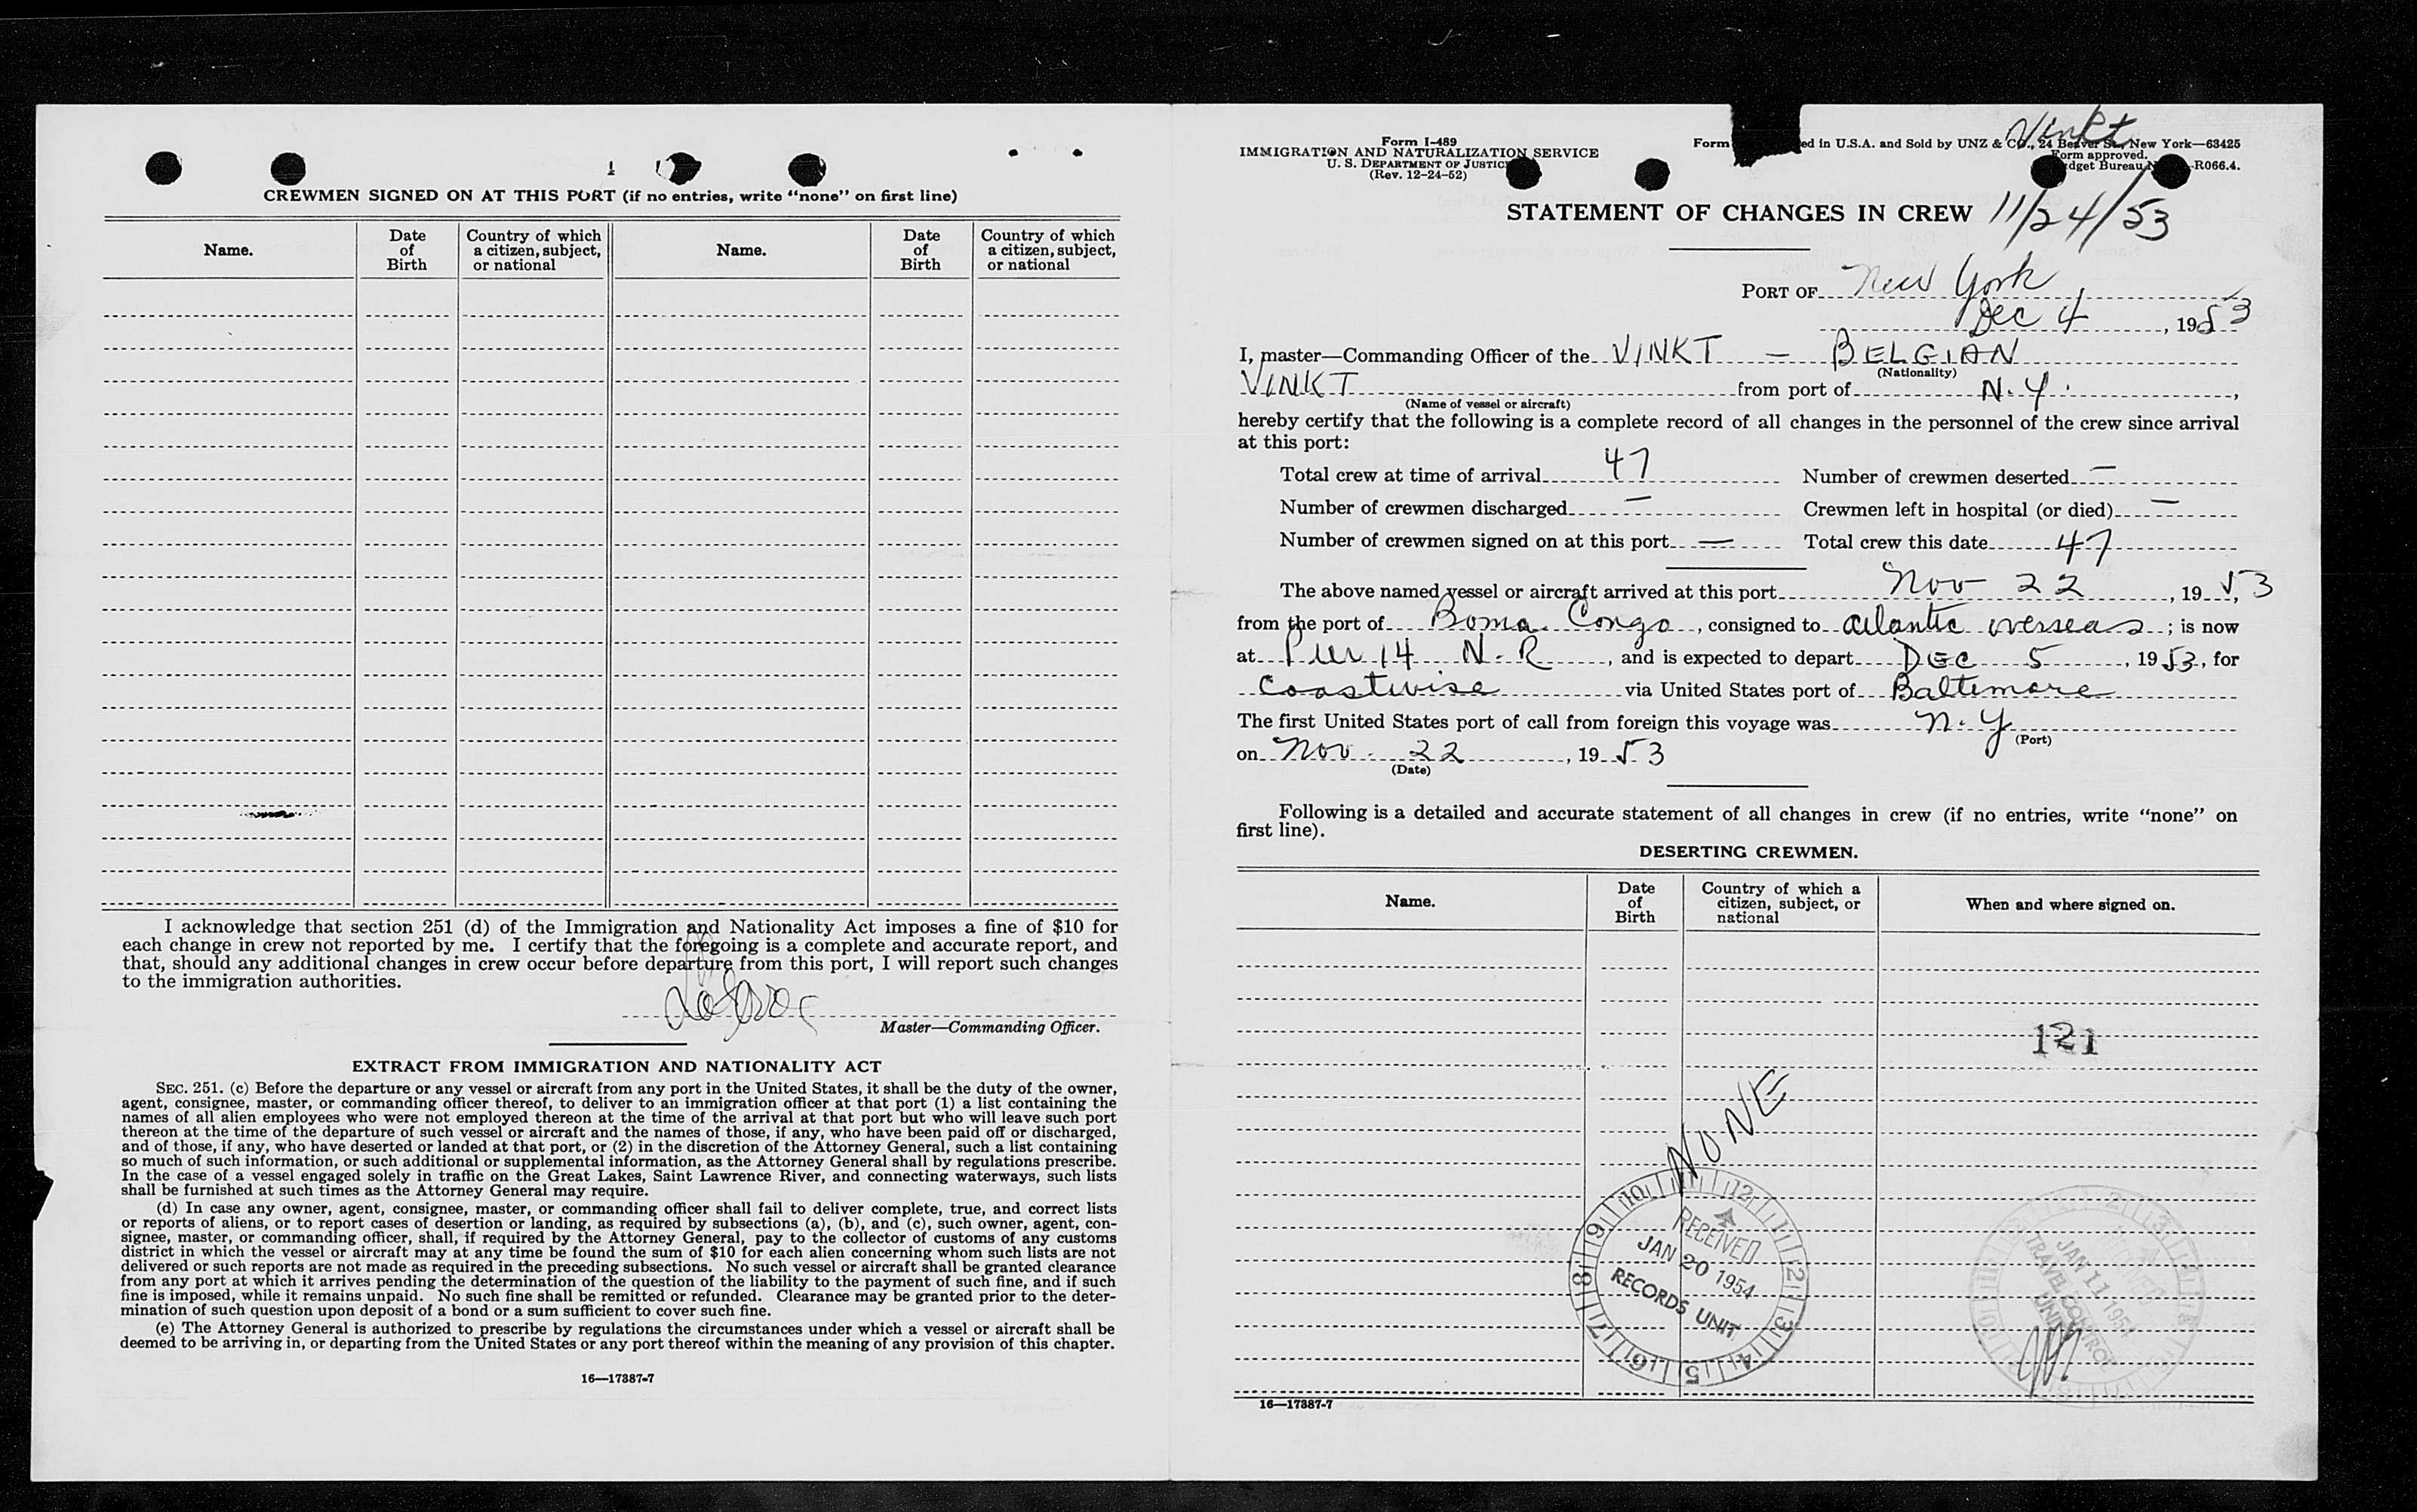 CREWMEN SIGNED ON AT THIS PORT (if no entries, write “none” on first line)
Name.
Date of Birth
Country of which a citizen, subject, or national
Name.
Date of Birth
Country of which a citizen, subject, or national
I acknowledge that section 251 (d) of the Immigration and Nationality Act imposes a fine of $10 for
each change in crew not reported by me. I certify that the foregoing is a complete and accurate report, and
that, should any additional changes in crew occur before departure from this port, I will report such changes
to the immigration authorities.
Master—Commanding Officer.
EXTRACT FROM IMMIGRATION AND NATIONALITY ACT
SEC. 251. (c) Before the departure or any vessel or aircraft from any port in the United States, it shall be the duty of the owner,
agent, consignee, master, or commanding officer thereof, to deliver to an immigration officer at that port (1) a list containing the
names of all alien employees who were not employed thereon at the time of the arrival at that port but who will leave such port
thereon at the time of the departure of such vessel or aircraft and the names of those, if any, who have been paid off or discharged,
and of those, if any, who have deserted or landed at that port, or (2) in the discretion of the Attorney General, such a list containing
so much of such information, or such additional or supplemental information, as the Attorney General shall by regulations prescribe.
In the case of a vessel engaged solely in traffic on the Great Lakes, Saint Lawrence River, and connecting waterways, such lists
shall be furnished at such times as the Attorney General may require.
(d) In case any owner, agent, consignee, master, or commanding officer shall fail to deliver complete, true, and correct lists
or reports of aliens, or to report cases of desertion or landing, as required by subsections (a), (b), and (c), such owner, agent, con-
signee, master, or commanding officer, shall, if required by the Attorney General, pay to the collector of customs of any customs
district in which the vessel or aircraft may at any time be found the sum of $10 for each alien concerning whom such lists are not
delivered or such reports are not made as required in the preceding subsections. No such vessel or aircraft shall be granted clearance
from any port at which it arrives pending the determination of the question of the liability to the payment of such fine, and if such
fine is imposed, while it remains unpaid. No such fine shall be remitted or refunded. Clearance may be granted prior to the deter-
mination of such question upon deposit of a bond or a sum sufficient to cover such fine.
(e) The Attorney General is authorized to prescribe by regulations the circumstances under which a vessel or aircraft shall be
deemed to be arriving in, or departing from the United States or any port thereof within the meaning of any provision of this chapter.
16—17387-7
Form I-489
IMMIGRATION AND NATURALIZATION SERVICE
U. S. DEPARTMENT OF JUSTIC
(Rev. 12-24-52)
Vinkt
Form ed in U.S.A. and Sold by UNZ & CO., 24 Beaver St., New York—63425
Form approved.
dget Bureau N -R066.4.
STATEMENT OF CHANGES IN CREW 11/24/53
PORT OF New York
Dec 4, 1953
I, master—Commanding Officer of the VINKT — BELGIAN
(Nationality)
VINKT from port of N.Y.,
(Name of vessel or aircraft)
hereby certify that the following is a complete record of all changes in the personnel of the crew since arrival
at this port:
Total crew at time of arrival 47 Number of crewmen deserted —
Number of crewmen discharged — Crewmen left in hospital (or died) —
Number of crewmen signed on at this port — Total crew this date 47
The above named vessel or aircraft arrived at this port Nov 22, 1953,
from the port of Boma Congo, consigned to atlantic overseas; is now
at Pier 14 N.R, and is expected to depart DEC 5, 1953, for
Coastwise via United States port of Baltimore
The first United States port of call from foreign this voyage was N.Y
(Port)
on Nov. 22, 1953
(Date)
Following is a detailed and accurate statement of all changes in crew (if no entries, write “none” on
first line).
DESERTING CREWMEN.
Name.
Date of Birth
Country of which a citizen, subject, or national
When and where signed on.
121
NONE
RECEIVED
JAN 20 1954
RECORDS UNIT
JAN 11 1954
TRAVEL CONTROL
UNIT
16—17387-7